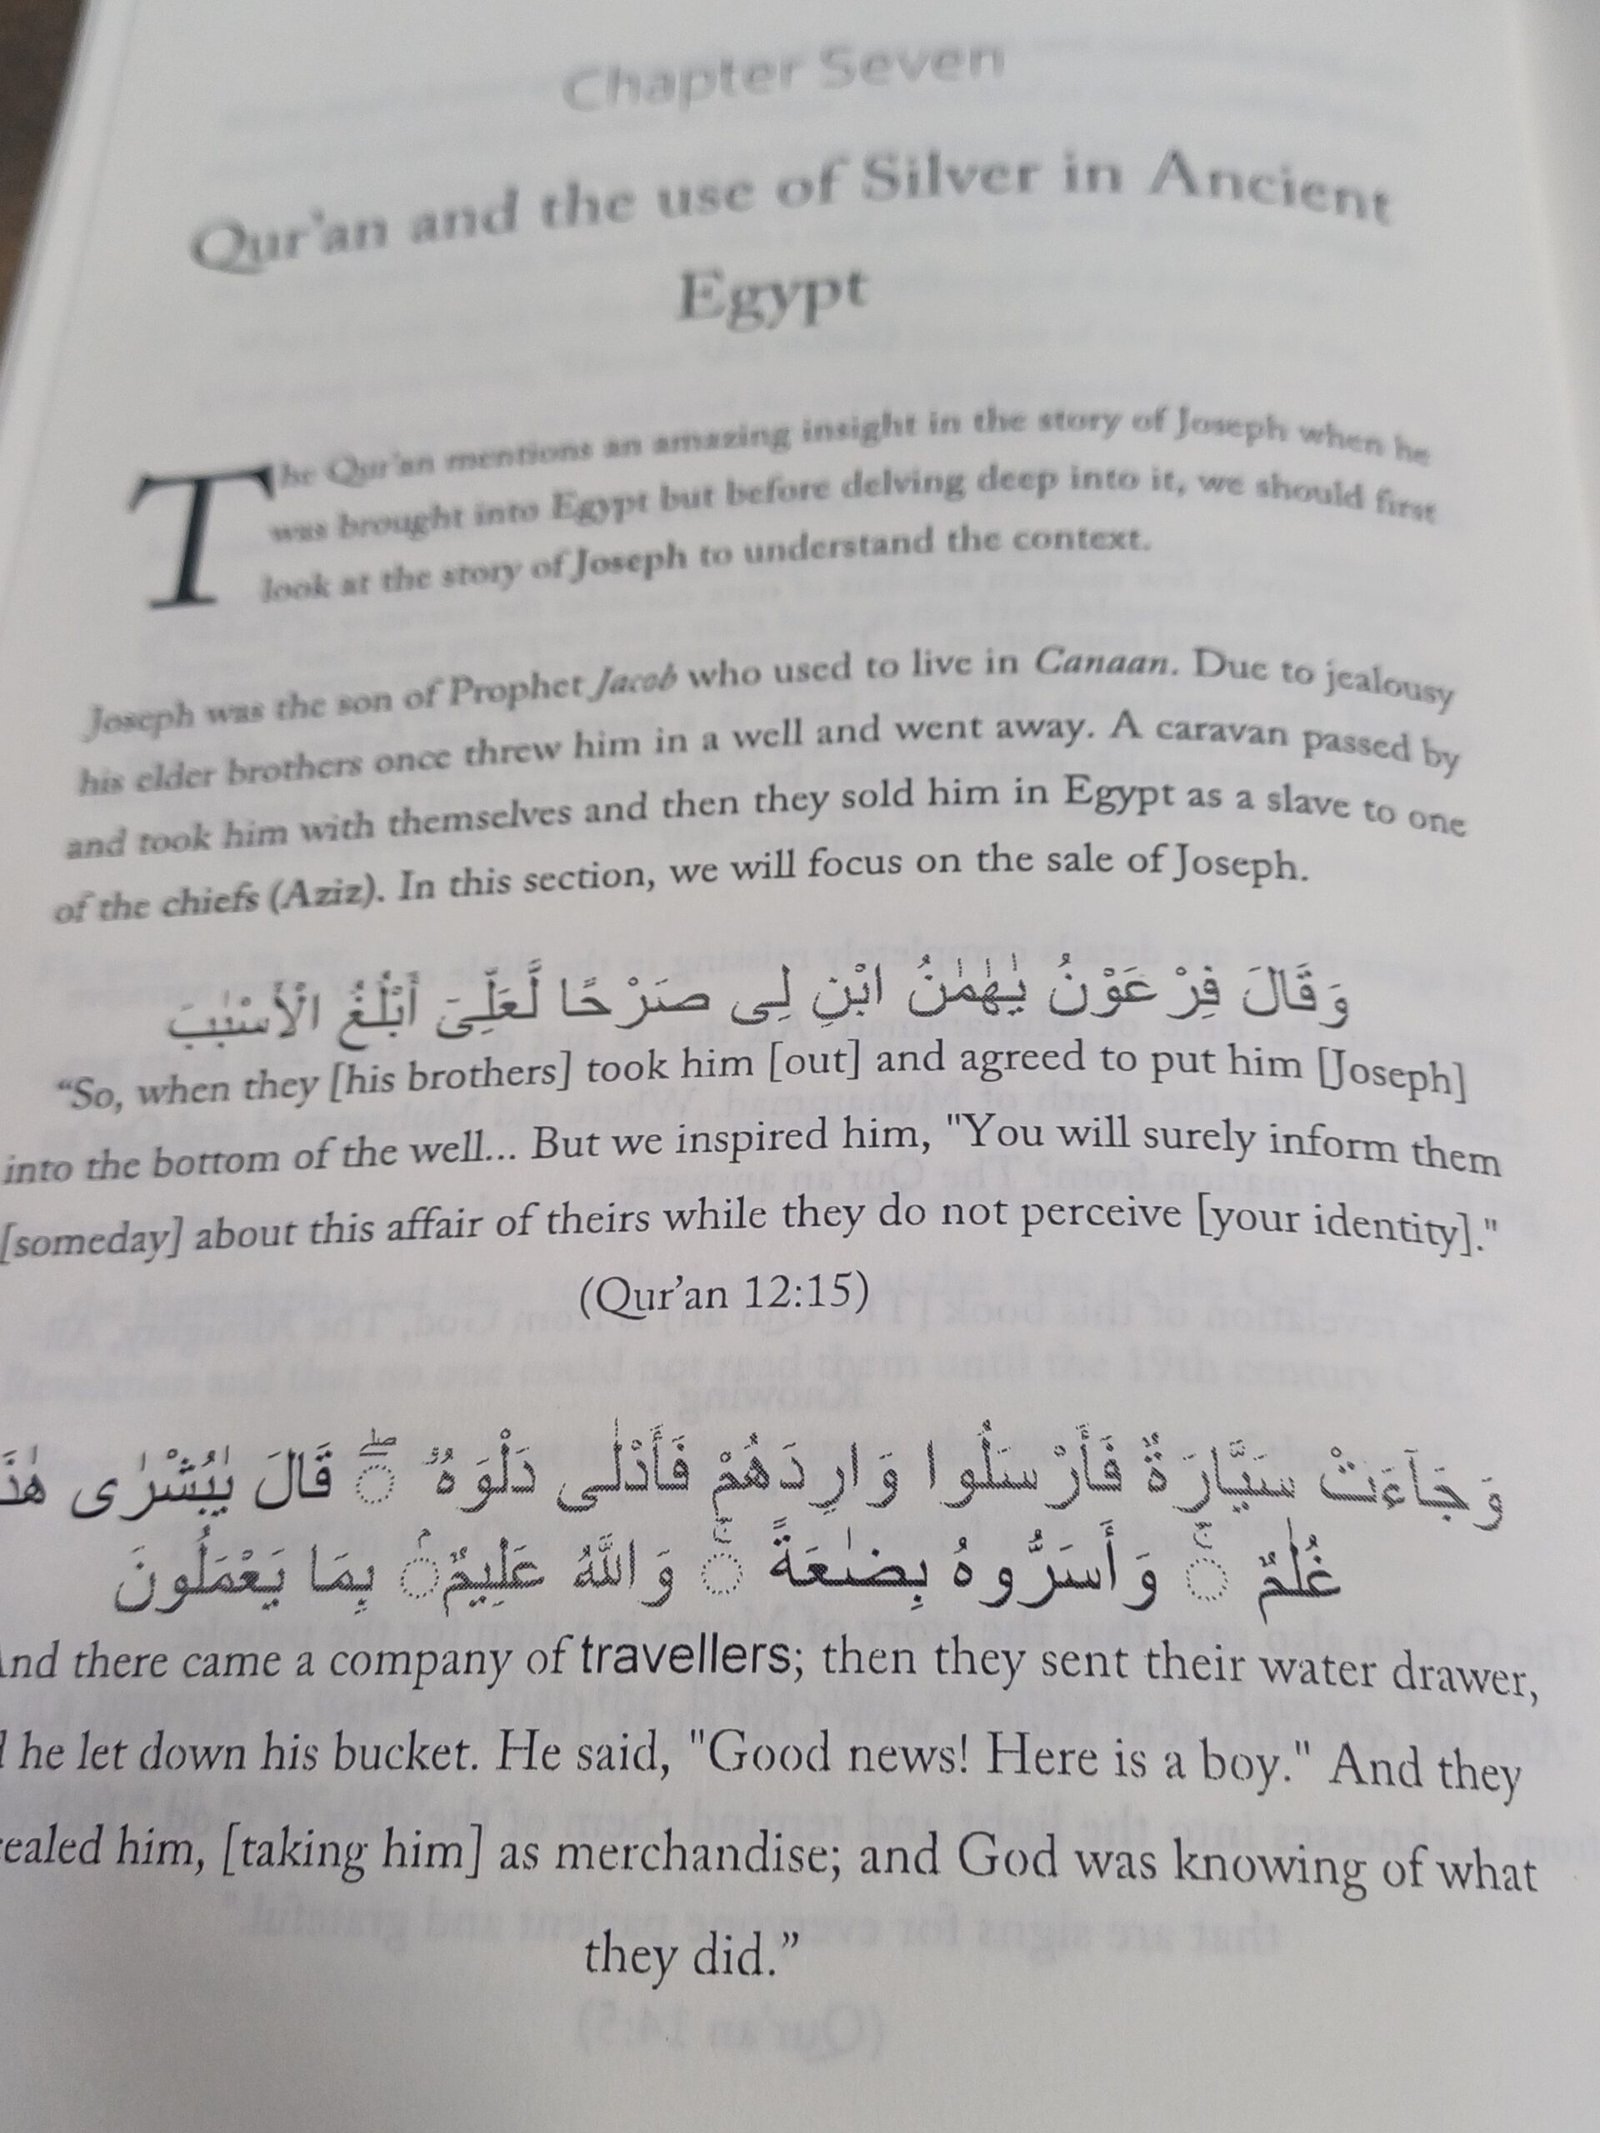 Chapter Seven
Qur'an and the use of Silver in Ancient
Egypt
The Qur'an mentions an amazing insight in the story of Joseph when he
was brought into Egypt but before delving deep into it, we should first
look at the story of Joseph to understand the context.
Joseph was the son of Prophet Jacob who used to live in Canaan. Due to jealousy
his elder brothers once threw him in a well and went away. A caravan passed by
and took him with themselves and then they sold him in Egypt as a slave to one
of the chiefs (Aziz). In this section, we will focus on the sale of Joseph.
وَقَالَ فِرْعَوْنُ يَٰهَٰمَٰنُ ابْنِ لِى صَرْحًا لَّعَلِّىٓ أَبْلُغُ الْأَسْبَٰبَ
“So, when they [his brothers] took him [out] and agreed to put him [Joseph]
into the bottom of the well... But we inspired him, "You will surely inform them
[someday] about this affair of theirs while they do not perceive [your identity]."
(Qur’an 12:15)
وَجَآءَتْ سَيَّارَةٌ فَأَرْسَلُوا وَارِدَهُمْ فَأَدْلَٰى دَلْوَهُۥ ۖ قَالَ يَٰبُشْرَٰى هَٰذَا
غُلَٰمٌ ۚ وَأَسَرُّوهُ بِضَٰعَةً ۚ وَاللَّهُ عَلِيمٌۢ بِمَا يَعْمَلُونَ
And there came a company of travellers; then they sent their water drawer,
he let down his bucket. He said, "Good news! Here is a boy." And they
him, [taking him] as merchandise; and God was knowing of what
they did.”